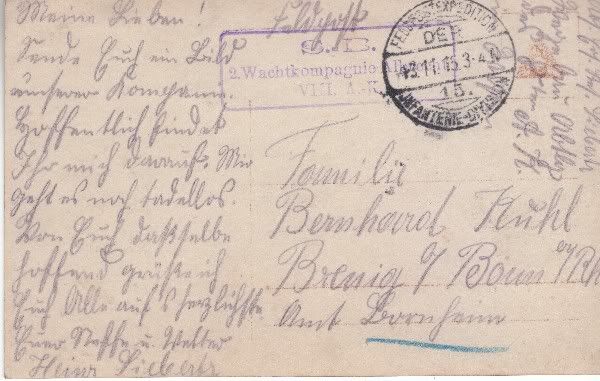 Meine Lieben!
Sende Euch ein Bild
unserer Kompanie.
Hoffentlich findet
Ihr mich darauf. Mir
geht es noch tadellos.
Von Euch dasselbe
hoffend grüße ich
Euch Alle auf's herzlichste
Euer Neffe u. Vetter
Heinr.
Feldpost
S. B.
2. Wachtkompagnie
VIII. A.-K.
FELDPOSTEXPEDITION
DER
13.11.15. 3-4 N
15.
INFANTERIE-DIVISION
Familie
Bernhard Kuhl
Brenig b/ Bonn a/Rh
Amt Bornheim